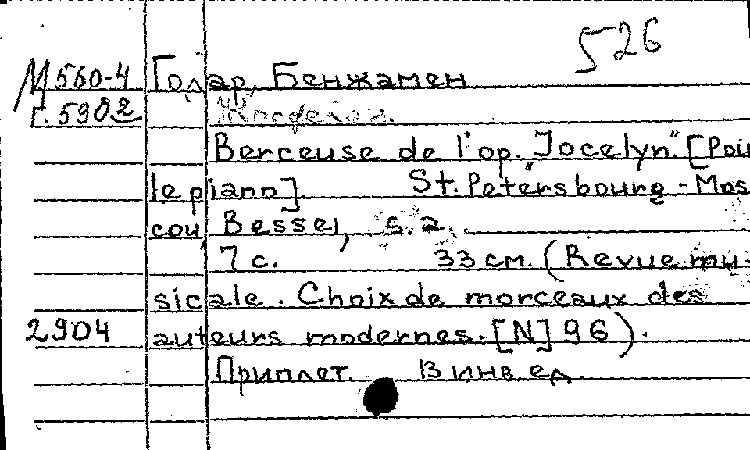 526
М 560-4 Годар, Бенжамен
Г. 5902 Жоселен.
Berceuse de l'op. "Jocelyn". [Pour
le piano]. St. Petersbourg - Mos
cou, Bessel, s. a.
7 с. 33 см. (Revue mu-
sicale. Choix de morceaux des
2904 auteurs modernes. [N] 96).
Приплет. В инв. ед.